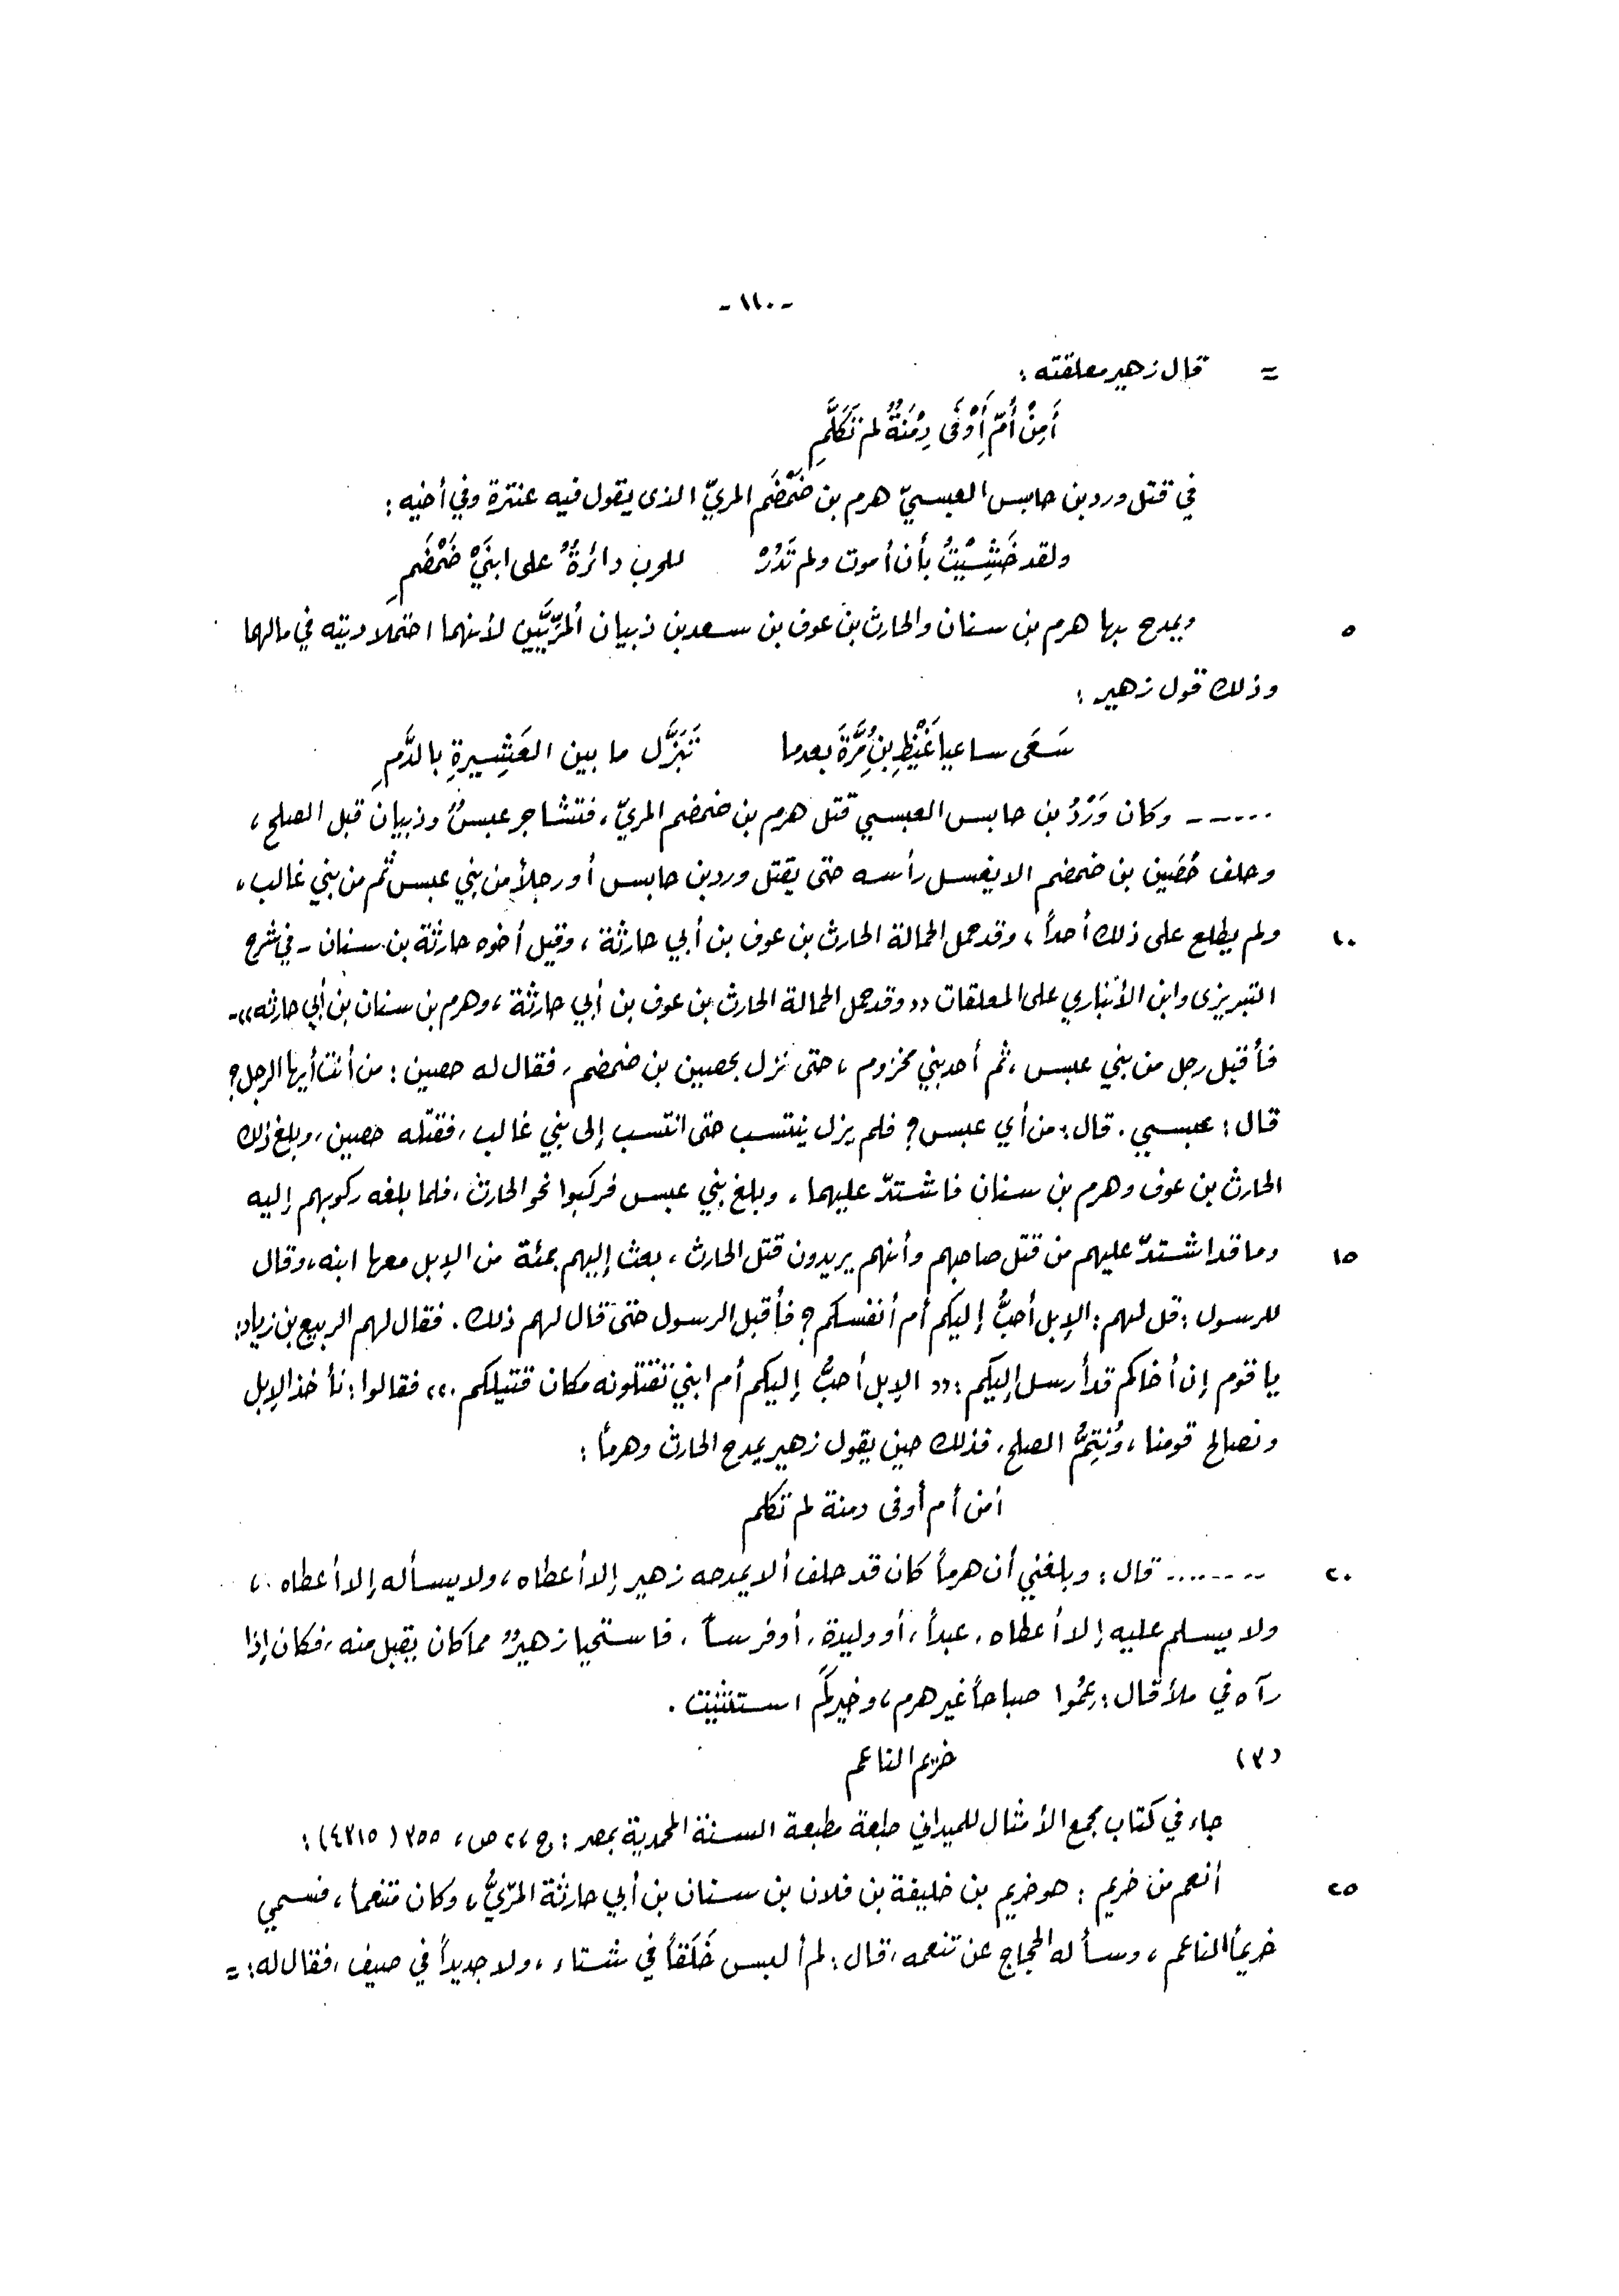 - ١١٠ -
= قال زهير معلقته :
أَمِنْ أُمِّ أَوْفَى دِمْنَةٌ لم تَكَلَّمِ
في قتل ورد بن حابس العبسيّ هرم بن ضَمْضَم المريّ الذى يقول فيه عنترة وفي أخيه :
ولقد خَشِيْتُ بأن أموت ولم تَدُرْ للحرب دائرةٌ على ابنَيْ ضَمْضَمِ
٥ ويمدح بها هرم بن سنان والحارث بن عوف بن سعد بن ذبيان المُرِّيَّيْن لأنهما احتملا ديته في مالهما
وذلك قول زهير :
سَعَى ساعيا غَيْظِ بنِ مُرَّةَ بعدما تَبَزَّل ما بين العَشِيرةِ بالدَّمِ
...... وكان وَرْدُ بن حابس العبسي قتل هرم بن ضمضم المريّ ، فتشاجر عبسٌ وذبيان قبل الصلح ،
وحلف حُصَين بن ضمضم الا يغسل رأسه حتى يقتل ورد بن حابس أو رجلاً من بني عبس ثم من بني غالب ،
١٠ ولم يطلع على ذلك أحداً ، وقد حمل الحمالة الحارث بن عوف بن أبي حارثة ، وقيل أخوه حارثة بن سنان - في شرح
التبريزى وابن الأنباري على المعلقات «وقد حمل الحمالة الحارث بن عوف بن أبي حارثة ، وهرم بن سنان بن أبي حارثه» -
فأقبل رجل من بني عبس ، ثم أحد بني مخزوم ، حتى نزل بحصين بن ضمضم ، فقال له حصين : من أنت أيها الرجل؟
قال : عبسي . قال : من أي عبس؟ فلم يزل ينتسب حتى انتسب إلى بني غالب ، فقتله حصين ، وبلغ ذلك
الحارث بن عوف وهرم بن سنان فاشتدّ عليهما ، وبلغ بني عبس فركبوا نحو الحارث ، فلما بلغه ركوبهم إليه
١٥ وما قد اشتدّ عليهم من قتل صاحبهم وأنهم يريدون قتل الحارث ، بعث إليهم بمئة من الإبل معها ابنه ، وقال
للرسول : قل لهم : الإبل أحبُّ إليكم أم أنفسكم؟ فأقبل الرسول حتى قال لهم ذلك . فقال لهم الربيع بن زياد :
يا قوم إن أخاكم قد أرسل إليكم : «الإبل أحبُّ إليكم أم ابني تقتلونه مكان قتيلكم .» فقالوا : نأخذ الإبل
ونصالح قومنا ، ونُتِمُّ الصلح ، فذلك حين يقول زهير يمدح الحارث وهرماً :
أمن أم أوفى دمنة لم تكلم
٢٠ ........ قال : وبلغني أن هرماً كان قد حلف ألا يمدحه زهير إلا أعطاه ، ولا يسأله إلا أعطاه ،
ولا يسلم عليه إلا أعطاه ، عبداً ، أو وليدة ، أو فرساً ، فاستحيا زهيرٌ مما كان يقبل منه ، فكان إذا
رآه في ملأ قال : عِمُوا صباحاً غير هرم ، وخيركَم استثنيت .
(٣) خريم الناعم
جاء في كتاب مجمع الأمثال للميداني طبعة مطبعة السنة المحمدية بمصر : ج ٢ ، ص ، ٣٥٥ ( ٤٣١٥) :
٢٥ أنعم من خريم : هو خريم بن خليفة بن فلان بن سنان بن أبي حارثة المرّيُّ ، وكان متنعماً ، فسمي
خريماً الناعم ، وسأله الحجاج عن تنعمه ، قال : لم ألبس خَلَقاً في شتاء ، ولا جديداً في صيف ، فقال له : =